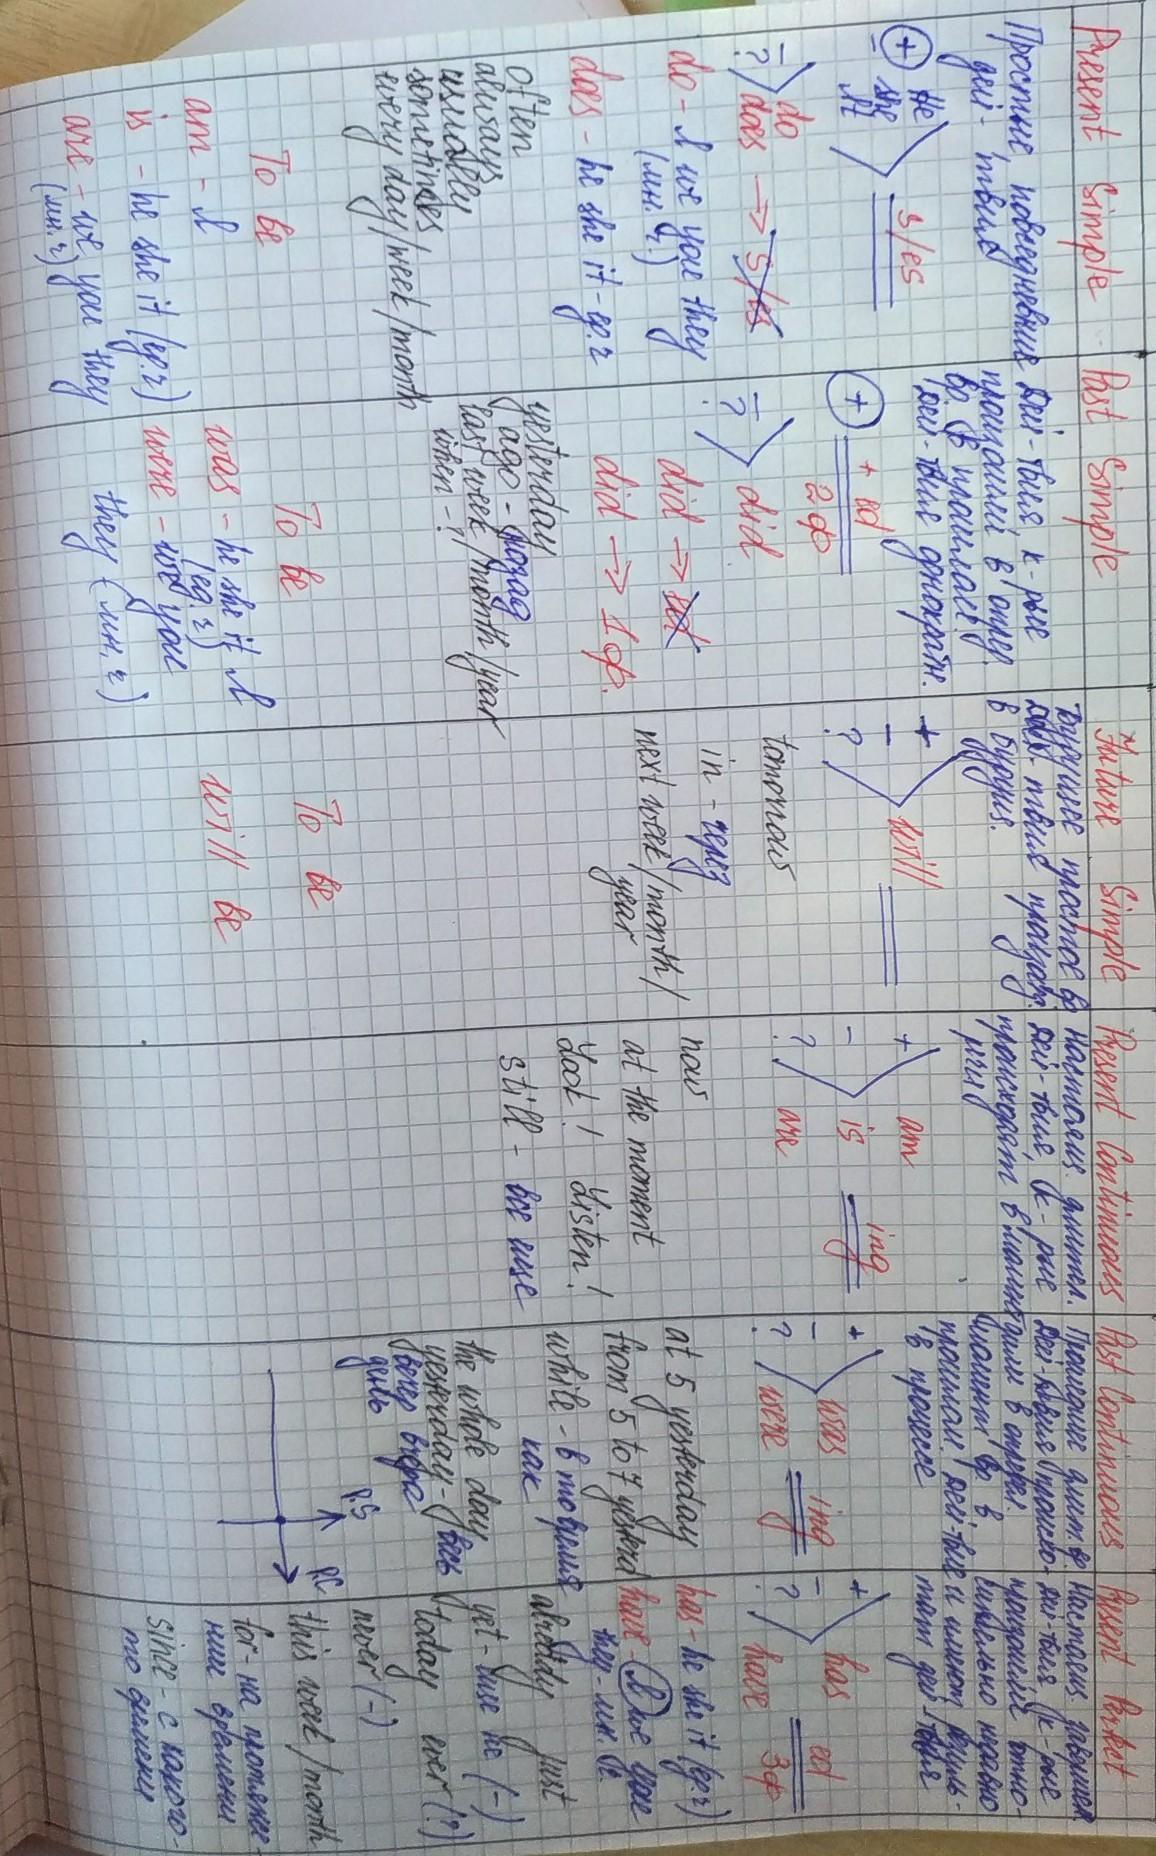 Present Simple
Простые, повседневные
дей-твия
+ He
- she
It
s/es
- do
? does → s/es
do - I we you they
(мн.ч.)
does - he she it - ед.ч
often
always
usually
sometimes
every day/week/month
To be
am - I
is - he she it (ед.ч)
are - we you they
(мн.ч)
Past Simple
Дей-твия, к-рые
произошли в опред.
вр. (в прошлое)
дей-твие однократн.
+ + ed
2 ф
-
? did
did → ed
did → 1 ф.
yesterday
ago - назад
last week/month/year
when - ?
To be
was - he she it I
(ед.ч)
were - we you
they (мн.ч)
Future Simple
Будущее простое вр
дей-твие произойд.
в будущ.
+
-
? will
tomorrow
in - через
next week/month/
year
To be
will be
Present Continuous
Настоящ. длител.
дей-твие, (к-рые
происходят в момент
речи)
+ am
- is ing
? are
now
at the moment
Look! Listen!
still - все еще
Past Continuous
Прошедшее длит. вр.
дей-твия
в опредл.
момент вр в
прошлом дей-твие
в процессе
+ was ing
-
? were
at 5 yesterday
from 5 to 7 yesterd
while - в то время
как
the whole day
yesterday - весь
день вчера
день
P.S
P.C
Present Perfect
Настоящ. заверш
дей-твия (к-рые
произошли отно-
сительно недавно
и имеют резуль-
тат дей-твия
+ has ed
-
? have 3ф
has - he she it (ед.ч)
have - I we you
they - мн.ч.
already just
yet - еще не (-)
today ever (?)
never (-)
this week/month
for - на протяже-
ние времени
since - с какого-
то времени